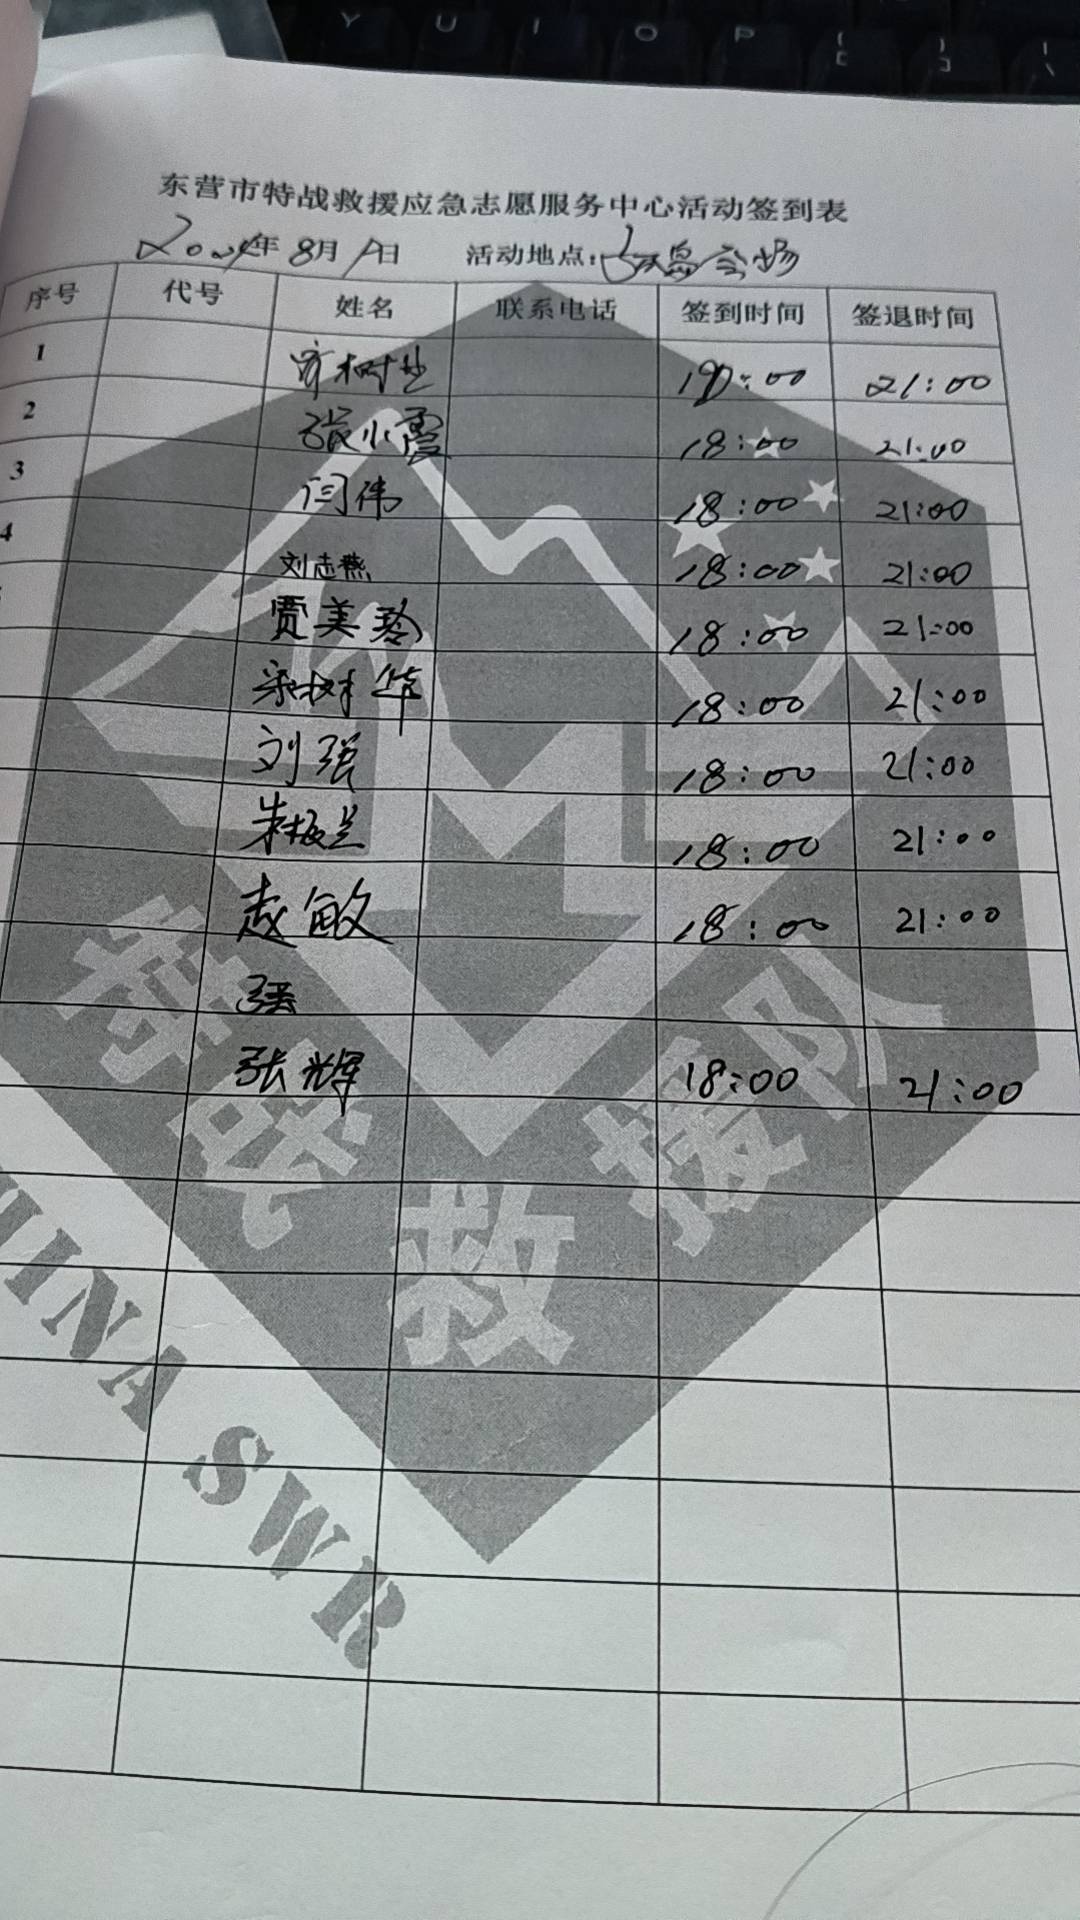 Y U I O P [ ] \
东营市特战救援应急志愿服务中心活动签到表
年 8月 日 活动地点:
序号 代号 姓名 联系电话 签到时间 签退时间
1 21:00
2 张小霞 18:00 21:00
3 闫伟 18:00 21:00
4 刘志燕 18:00 21:00
贾美玲 18:00 21:00
梁树华 18:00 21:00
刘强 18:00 21:00
朱板兰 18:00 21:00
赵敏 18:00 21:00
张辉 18:00 21:00
特战救援队
CHINA SWR